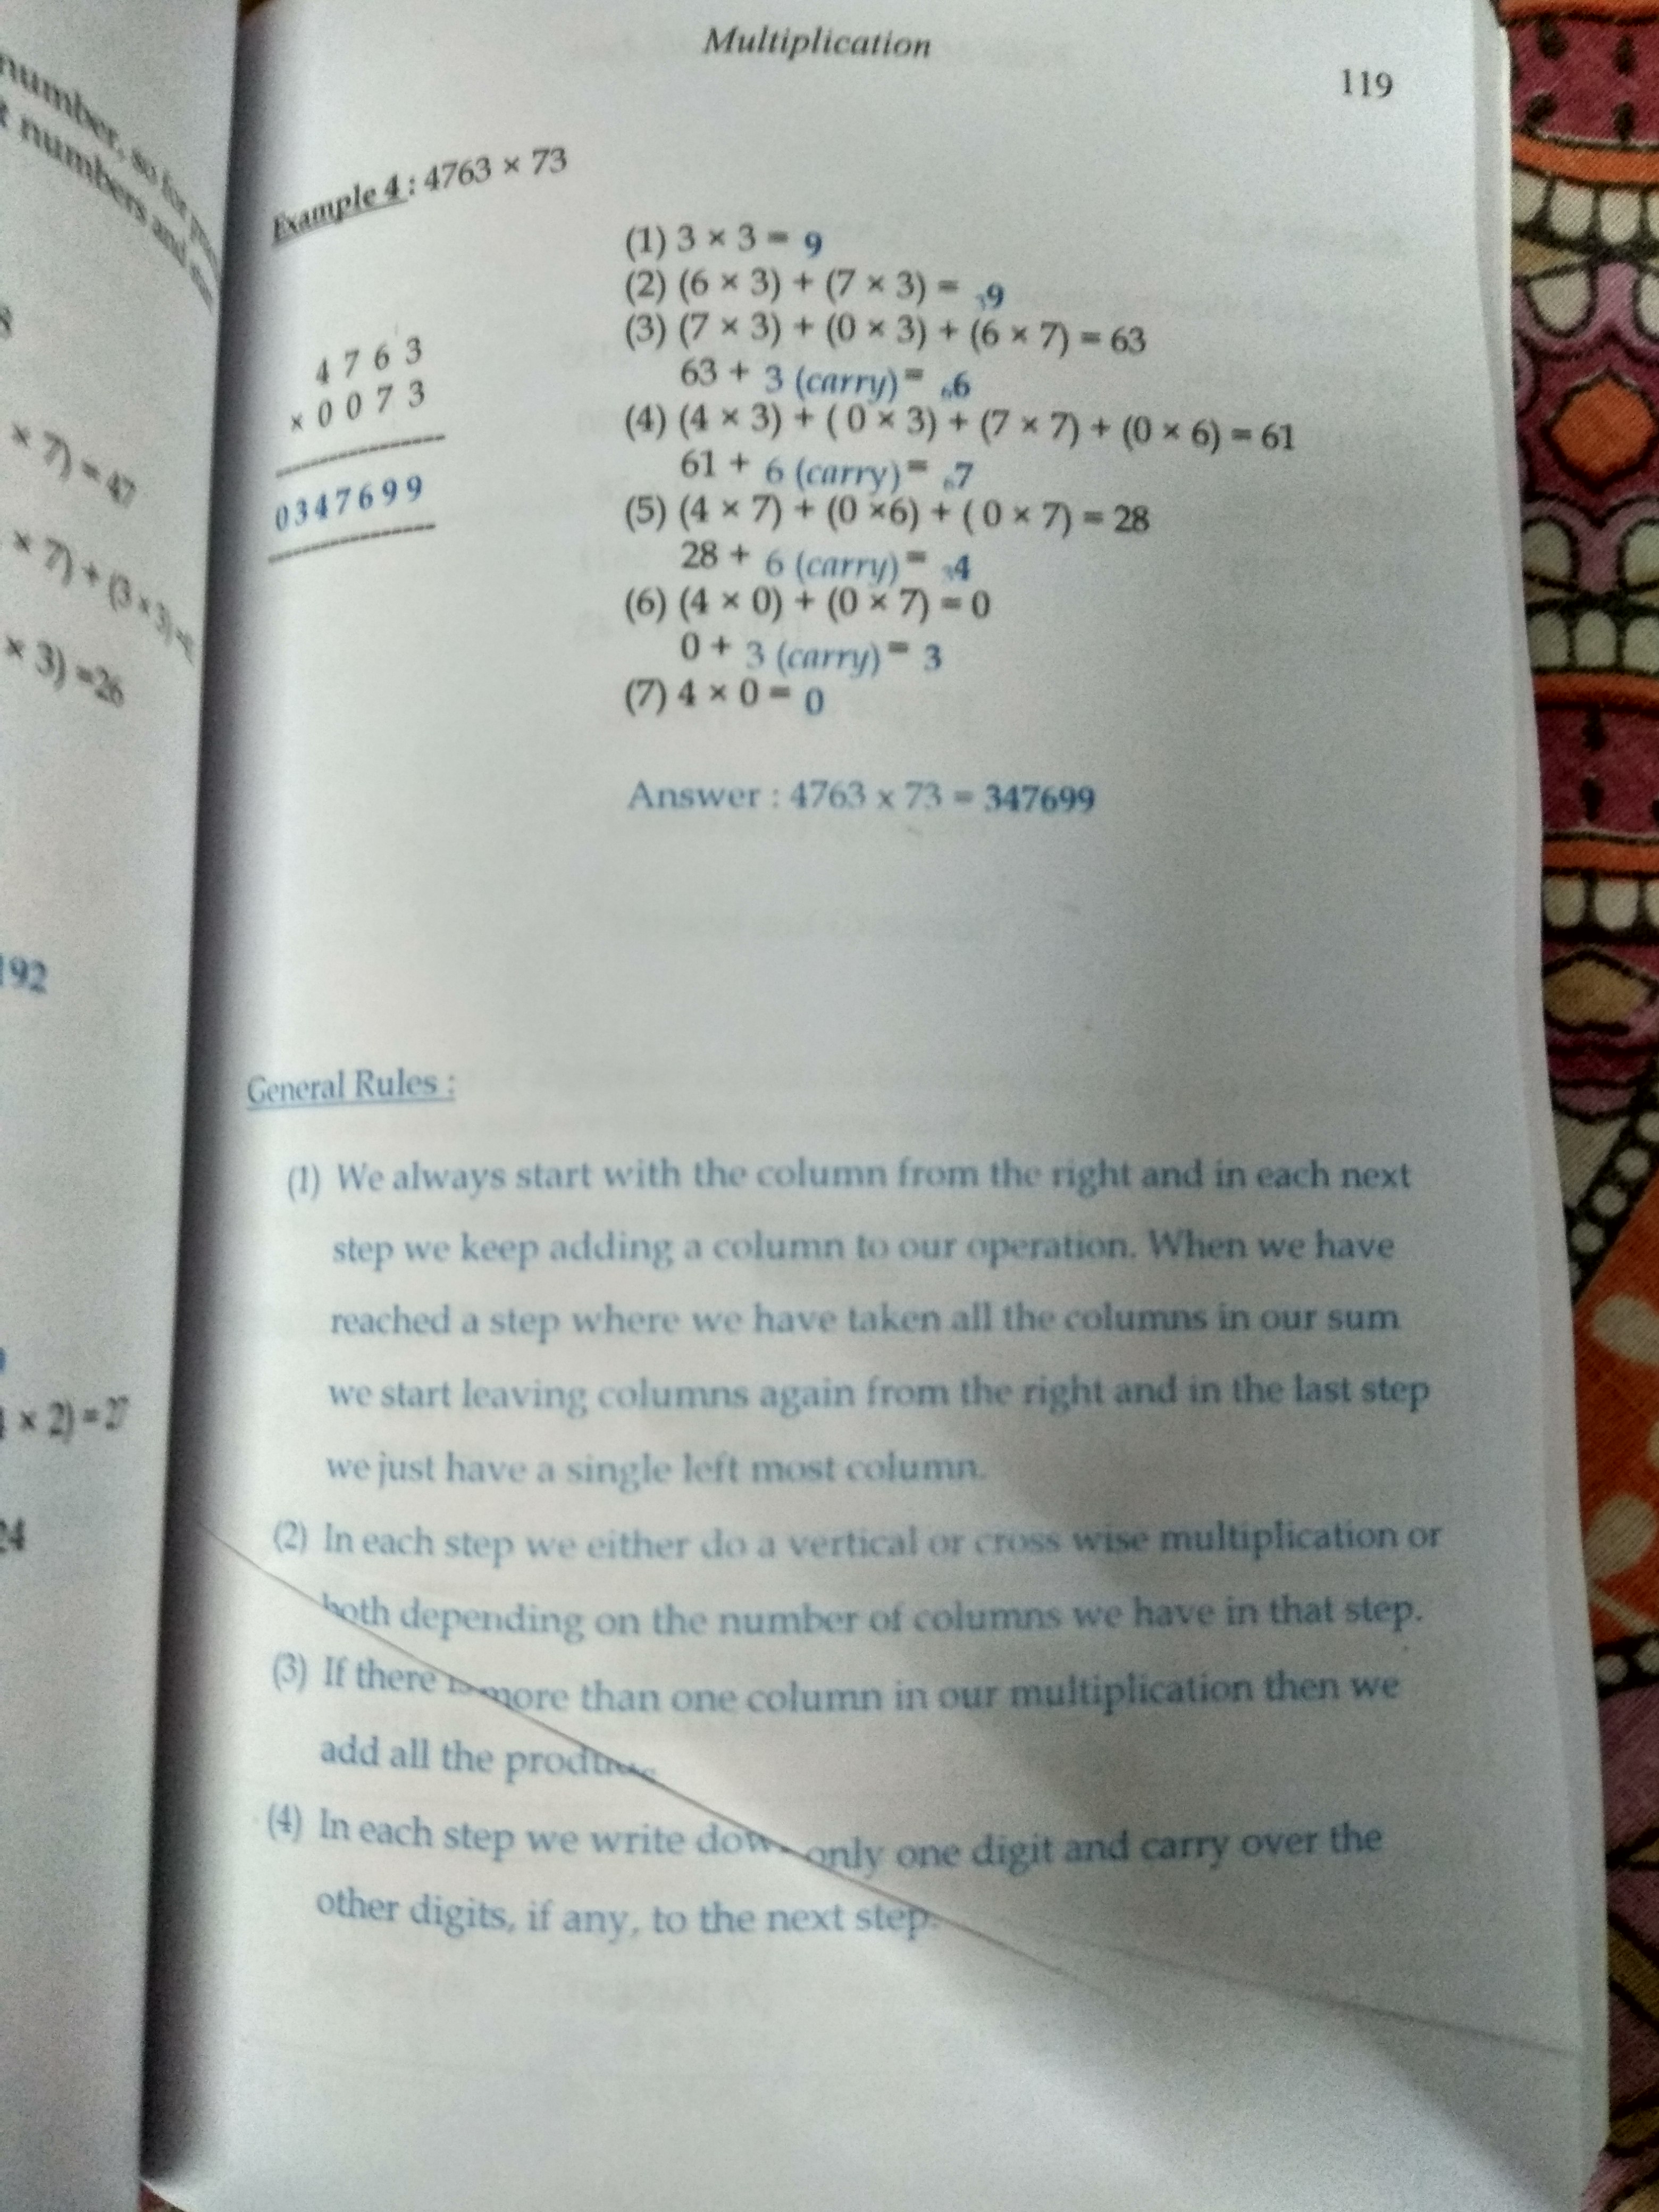 number, so for
numbers and
× 7) = 47
× 7) + (3 × 3) =
× 3) = 26
192
× 2) = 27
24
Multiplication
119
Example 4 : 4763 × 73
4 7 6 3
× 0 0 7 3
0 3 4 7 6 9 9
(1) 3 × 3 = 9
(2) (6 × 3) + (7 × 3) = ₃9
(3) (7 × 3) + (0 × 3) + (6 × 7) = 63
63 + 3 (carry) = ₆6
(4) (4 × 3) + ( 0 × 3) + (7 × 7) + (0 × 6) = 61
61 + 6 (carry) = ₆7
(5) (4 × 7) + (0 ×6) + ( 0 × 7) = 28
28 + 6 (carry) = ₃4
(6) (4 × 0) + (0 × 7) = 0
0 + 3 (carry) = 3
(7) 4 × 0 = 0
Answer : 4763 x 73 = 347699
General Rules :
(1) We always start with the column from the right and in each next
step we keep adding a column to our operation. When we have
reached a step where we have taken all the columns in our sum
we start leaving columns again from the right and in the last step
we just have a single left most column.
(2) In each step we either do a vertical or cross wise multiplication or
both depending on the number of columns we have in that step.
(3) If there is more than one column in our multiplication then we
add all the products
(4) In each step we write down only one digit and carry over the
other digits, if any, to the next step.